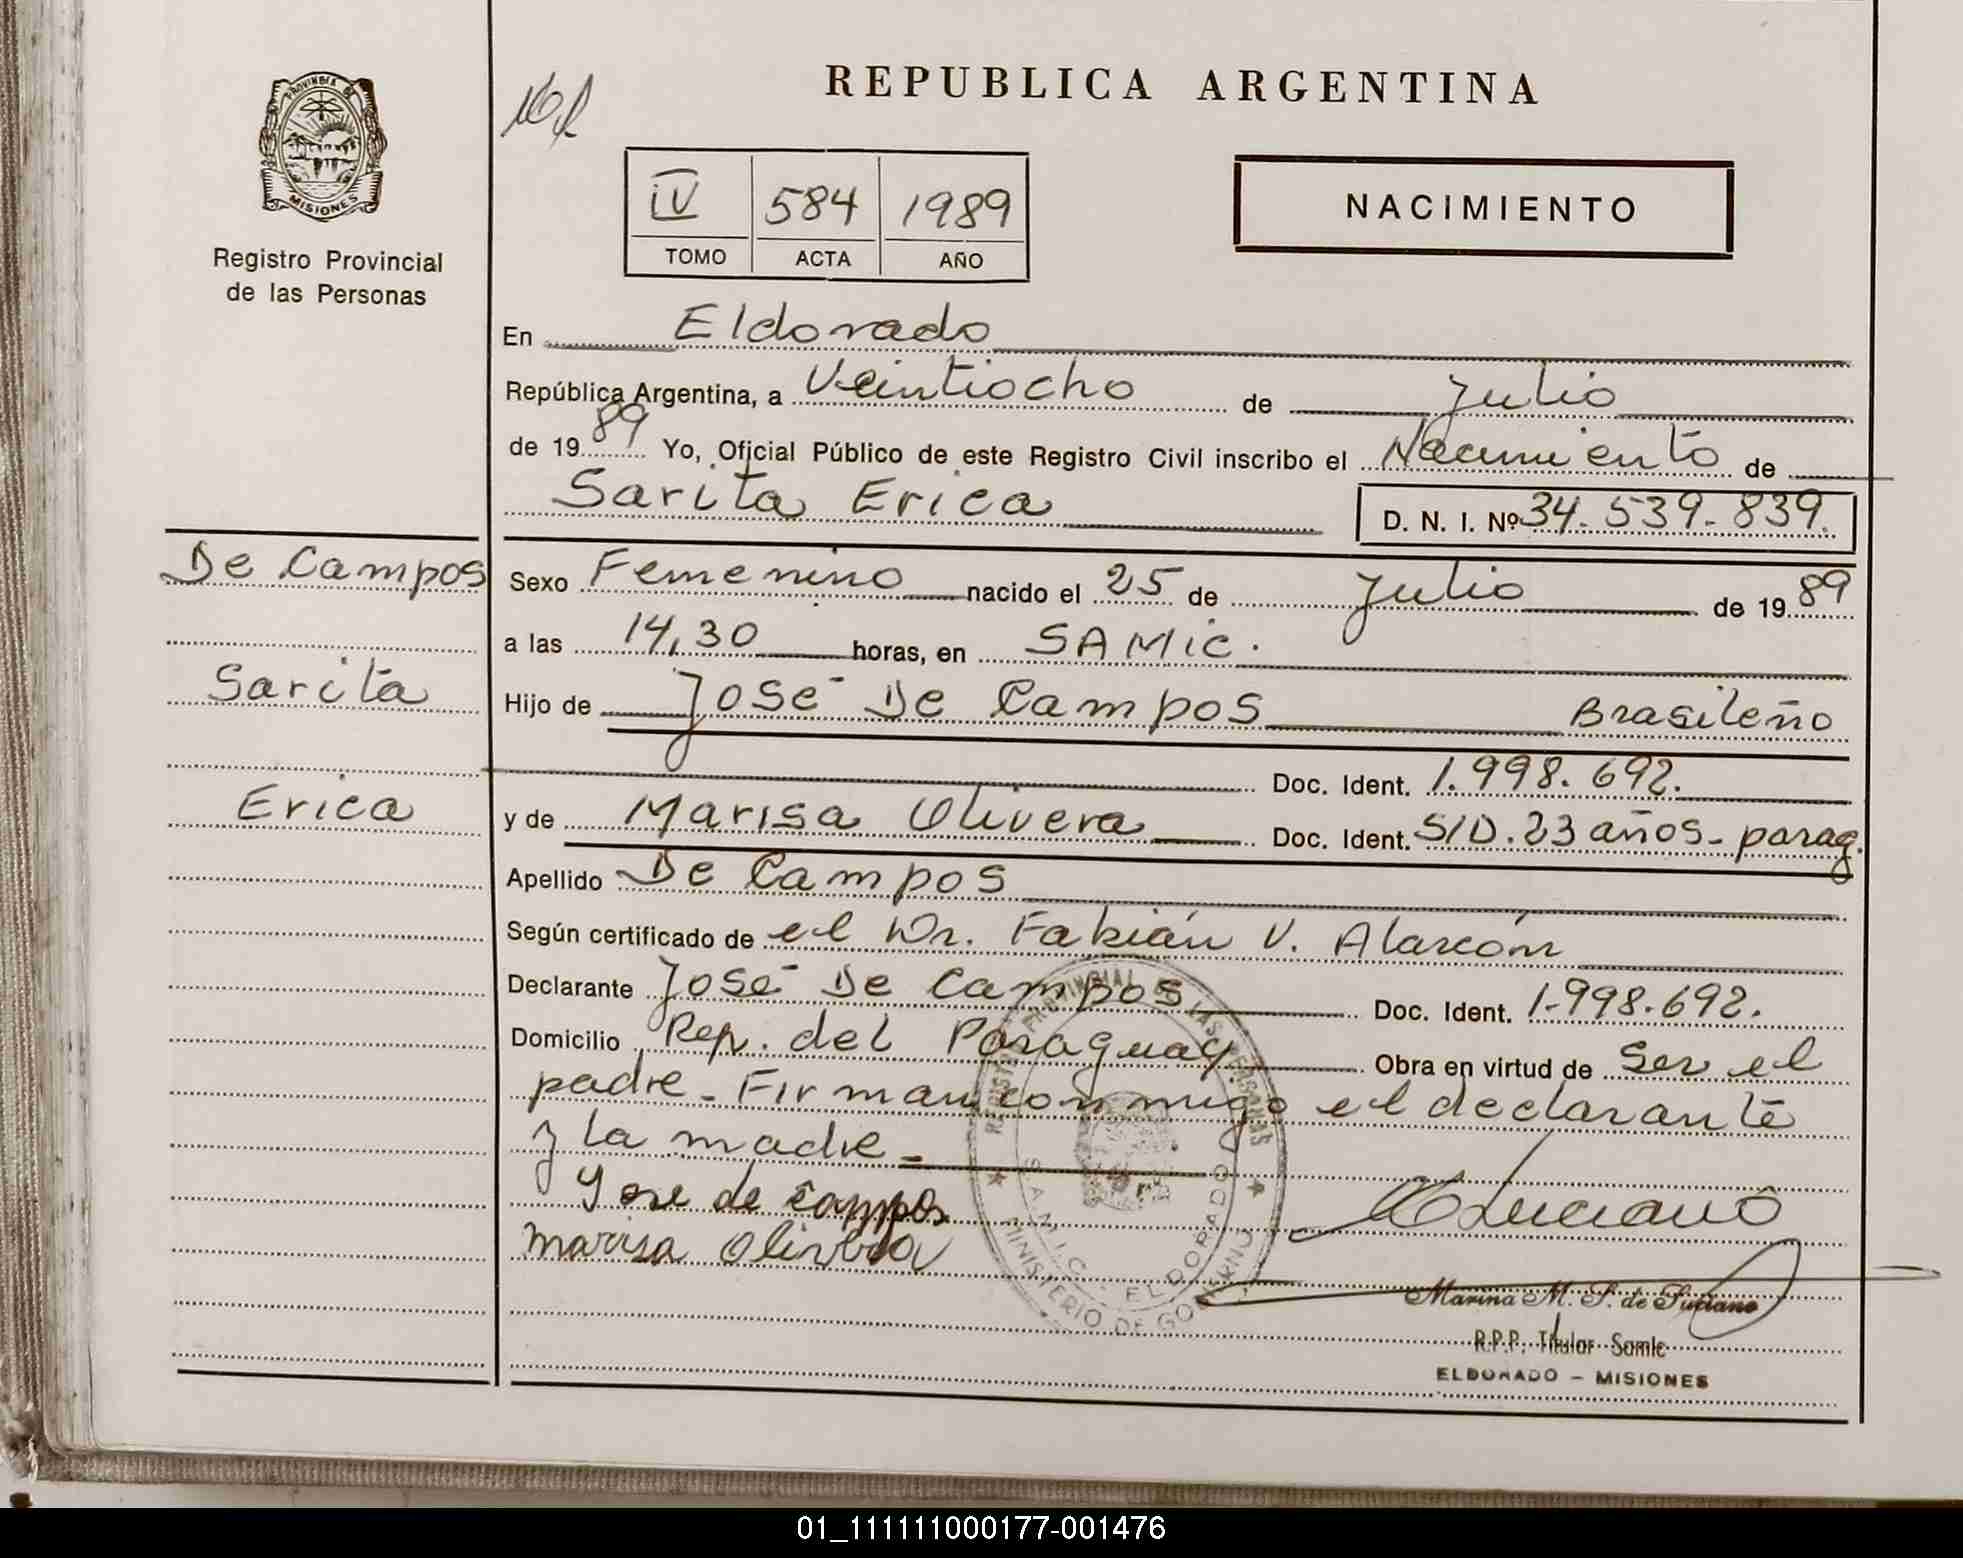 PROVINCIA DE
MISIONES
Registro Provincial
de las Personas
REPUBLICA ARGENTINA
IV 584 1989
TOMO ACTA AÑO
NACIMIENTO
En Eldorado
República Argentina, a Veintiocho de Julio
de 1989 Yo, Oficial Público de este Registro Civil inscribo el Nacimiento de
Sarita Erica D. N. I. Nº 34.539.839.
De Campos
Sarita
Erica
Sexo Femenino nacido el 25 de Julio de 1989
a las 14,30 horas, en SAMIC.
Hijo de José De Campos Brasileño
Doc. Ident. 1.998.692.
y de Marisa Olivera Doc. Ident. S/D. 23 años - parag.
Apellido De Campos
Según certificado de el Dr. Fabián V. Alarcón
Declarante José De Campos Doc. Ident. 1.998.692.
Domicilio Rep. del Paraguay Obra en virtud de Ser el
padre - Firman conmigo el declarante
y la madre -
Jose de campos
marisa Olivera
REGISTRO PROVINCIAL DE LAS PERSONAS
S.A.M.I.C. ELDORADO
MINISTERIO DE GOBIERNO
Luciano
Marina M. S. de Luciano
R.P.P. Titular Samic
ELDORADO - MISIONES
01_111111000177-001476